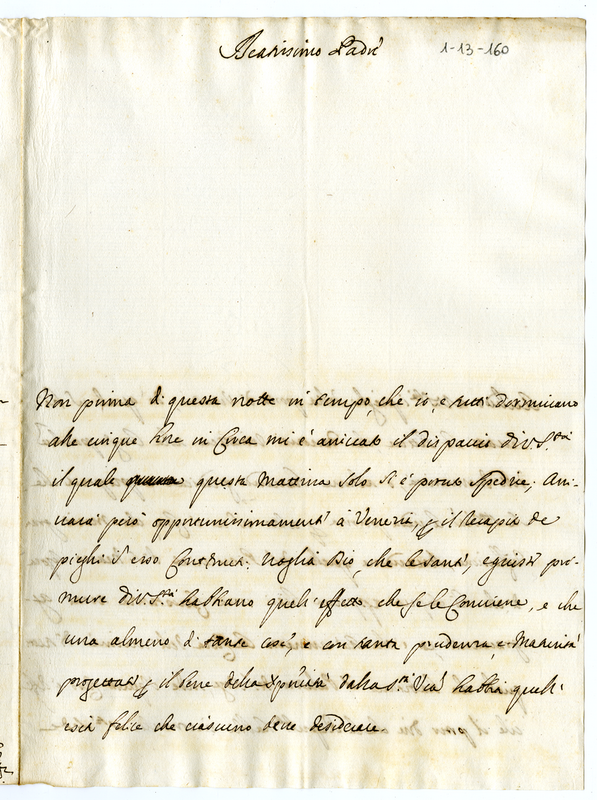 Beatissimo Padre
1-13-160
Non prima di questa notte in tempo, che io, e tutti dormivano
alle cinque hore in Circa mi è arrivato il dispaccio di V. S.tà
il quale questa Mattina solo si è potuto spedire; Arri-
varà però opportunissimamente à Venezia, il recapito de
pieghi Voglia Dio, che le sante, e giuste pre-
mure di V. S.tà habbiano quell'effetto che se le Conviene, e che
una almeno di tante cose, e con tanta prudenza, e Maturità
progettate il bene della Xpnità dalla S.tà V.ra habbia quell'
esito felice che ciascuno deve desiderare